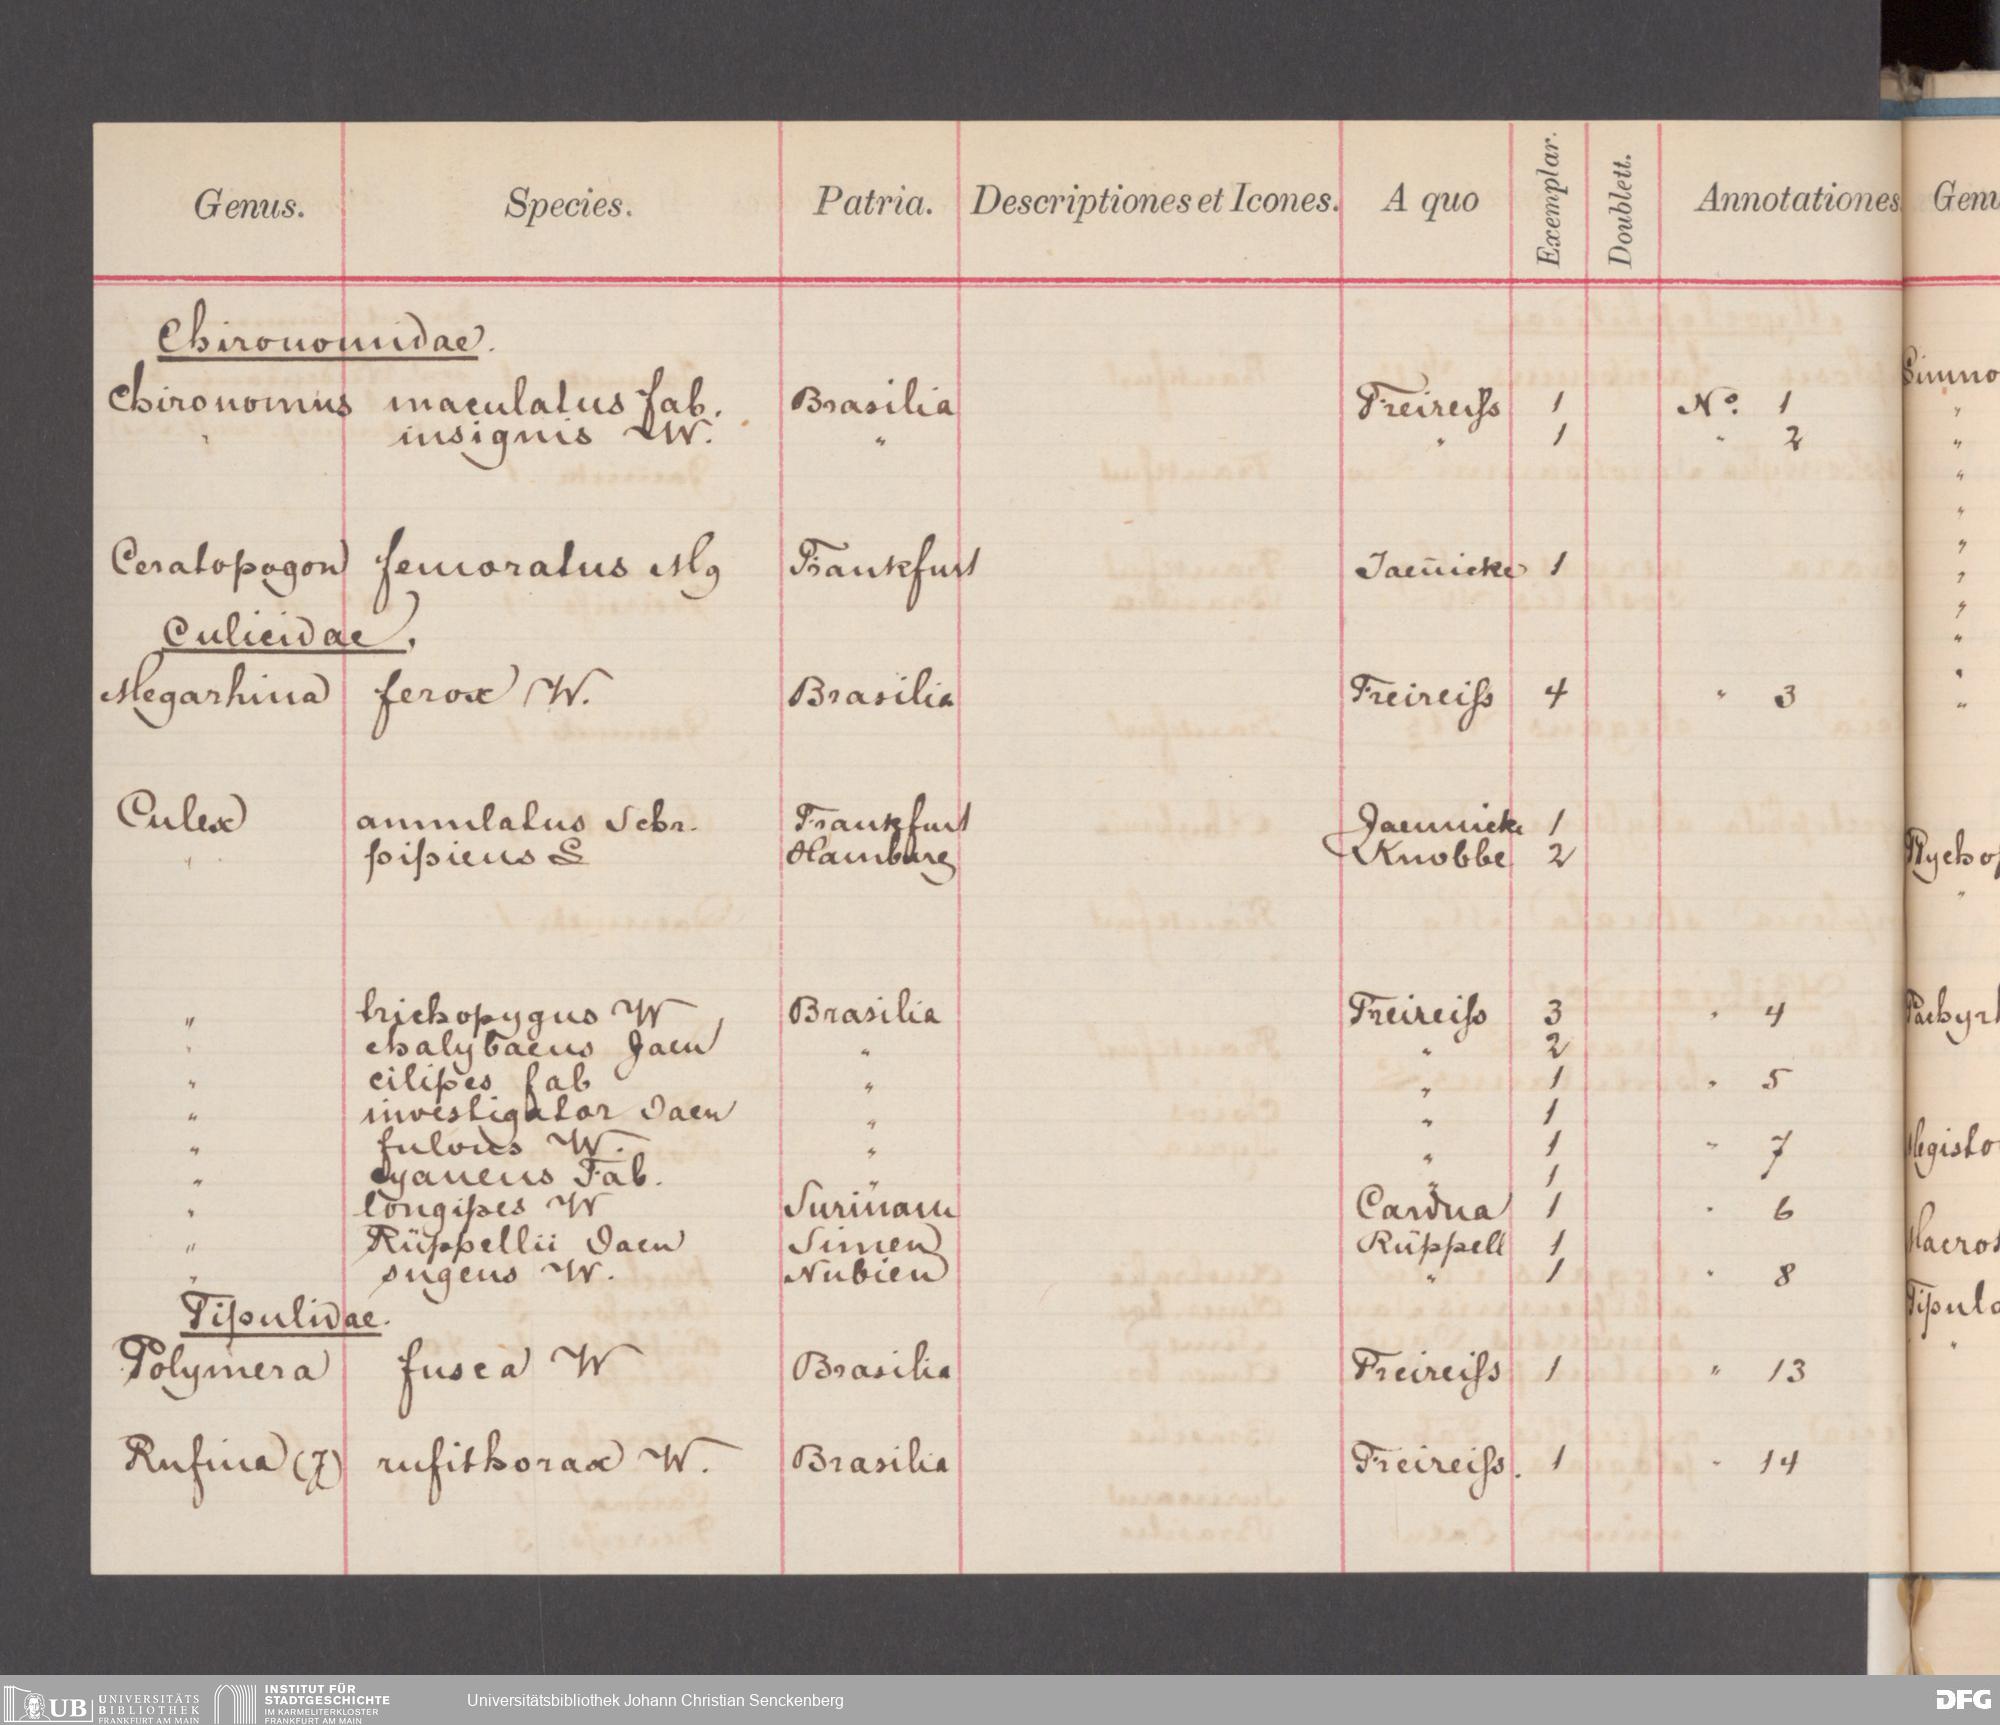 Genus. Species. Patria. Descriptiones et Icones. A quo Exemplar. Doublett. Annotationes. Genu
Chironomidae.
Chironomus maculatus Fab. Brasilia Freireiſs 1 No. 1
" insignis W. " " 1 " 2
Ceratopogon femoratus Mg Frankfurt Jaen̄icke 1
Culicidae.
Megarhina ferox W. Brasilia Freireiſs 4 " 3
Culex annulatus Schr. Frankfurt Jaennicke 1
" pipiens L Hamburg Knobbe 2
" trichopygus W Brasilia Freireiſs 3 " 4
" chalybaeus Jaen " " 2
" cilipes fab " " 1 " 5
" investigator Jaen " " 1
" fulvus W. " " 1 " 7
" cyaneus Fab. " " 1
" longipes W Surinam 1 " 6
" Rüppellii Jaen Simen Rüppell 1
" sugens W. Nubien " 1 " 8
Tipulidae.
Polymera fusca W Brasilia Freireiſs 1 " 13
Rufina (?) rufithorax W. Brasilia Freireiſs. 1 " 14
UB UNIVERSITÄTS BIBLIOTHEK FRANKFURT AM MAIN
INSTITUT FÜR STADTGESCHICHTE IM KARMELITERKLOSTER FRANKFURT AM MAIN
Universitätsbibliothek Johann Christian Senckenberg
DFG